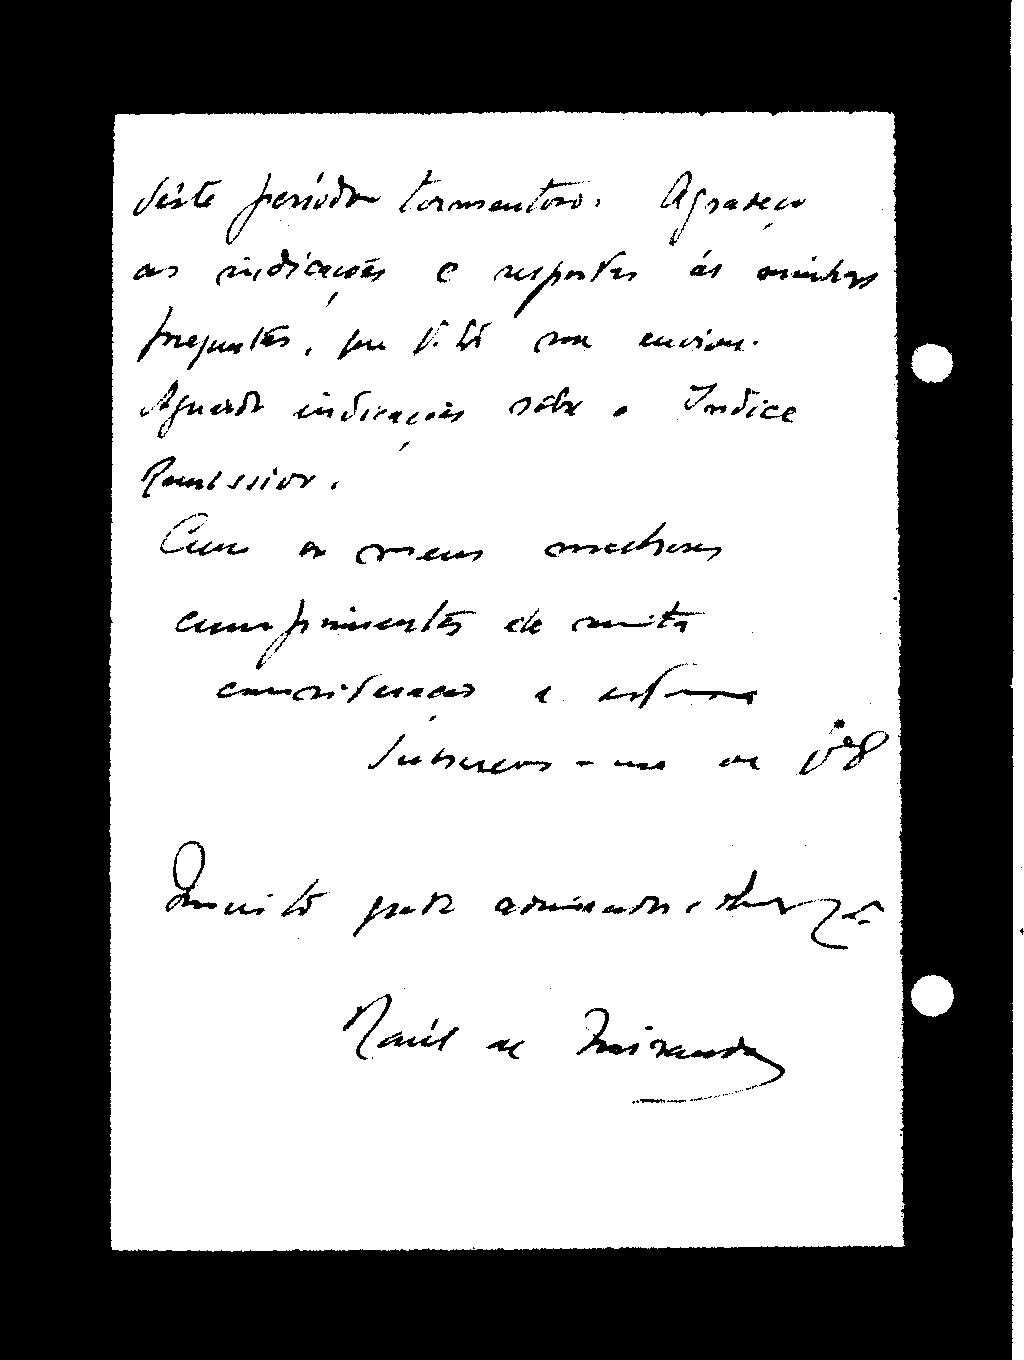 dêste período tormentoso. Agradeço
as indicações e respostas ás minhas
preguntas, que V. me enviou.
Aguardo indicações sôbre o Indice
Remissivo.
Com os meus melhores
cumprimentos de muita
consideração e estima
Subscrevo-me de
Muito grato admirador e
Raúl de Miranda